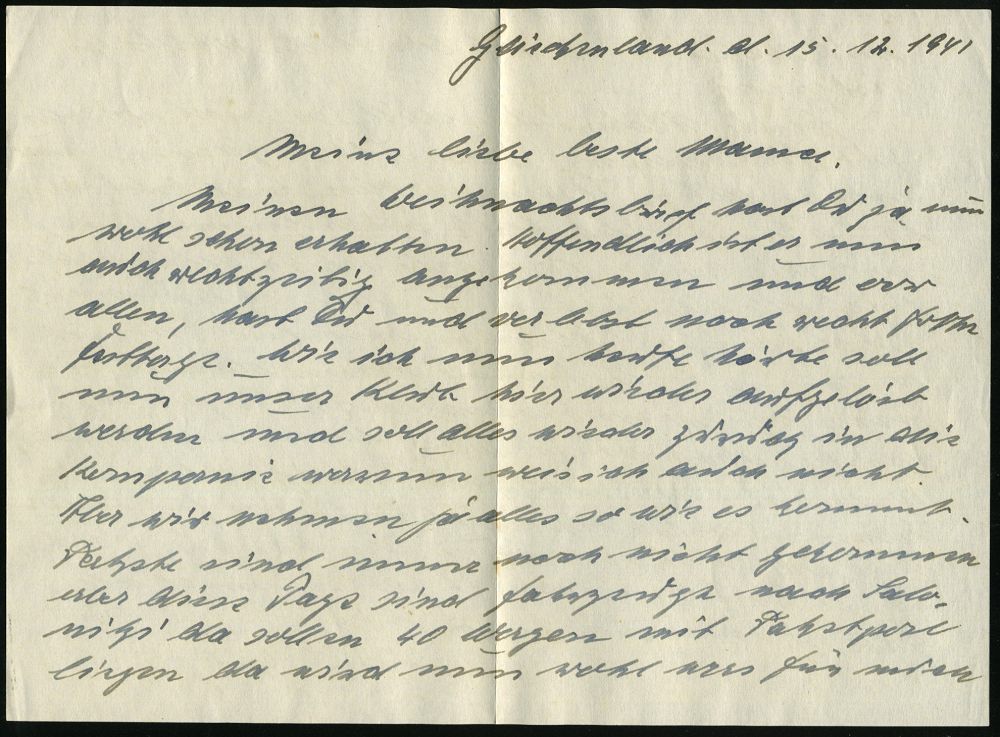 Griechenland. d. 15. 12. 1941
Meine liebe beste Mama.
Meinen Weihnachtsbrief hast Du ja nun
wohl schon erhalten. Hoffendlich ist er nun
auch rechtzeitig angekommen und vor
allen, hast Du und verlebst noch recht frohe
Festtage. Wie ich nun heute hörte soll
nun unser hier wieder aufgelöst
werden und soll alles wieder zurück in die
Kompanie warum weis ich auch nicht.
Aber wir nehmen ja alles so wie es kommt.
Pakete sind immer noch nicht gekommen
aber diese Tage sind Fahrzeuge nach Salo-
niki da sollen 40 Wagen mit Paketpost
liegen da wird nun wohl was für mich